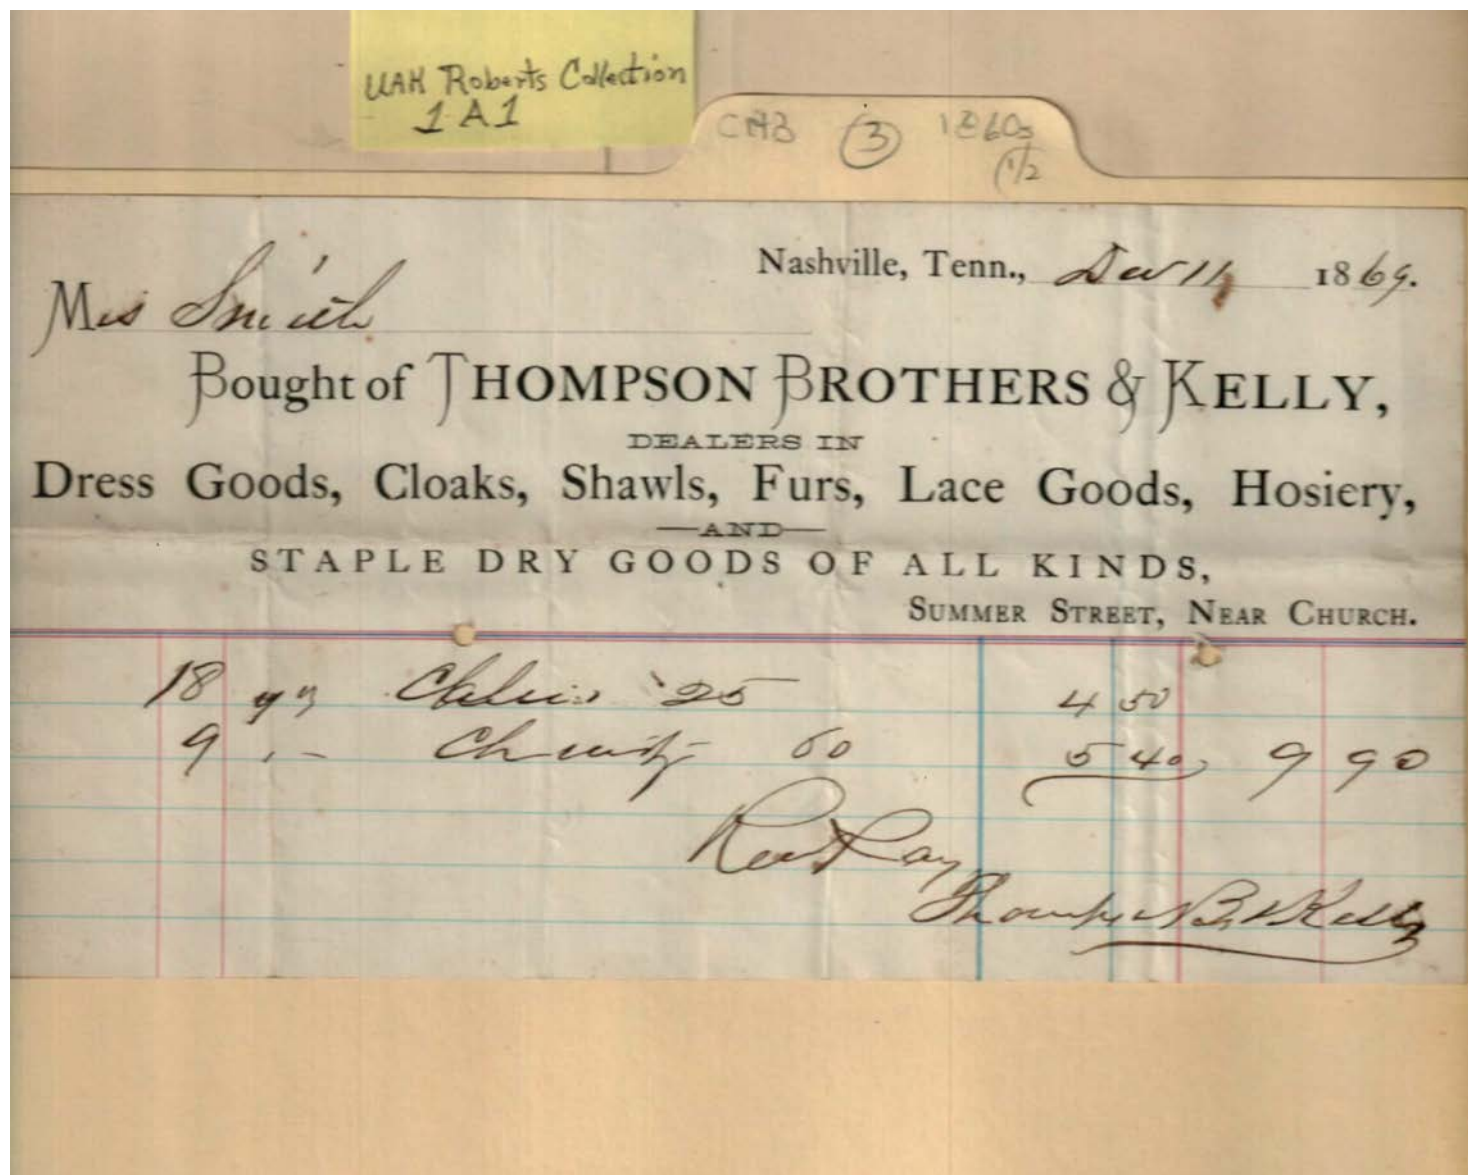 UAH Roberts Collection
1A1
CHB 3 1860s
1/2
Nashville, Tenn., Dec 11 1869.
Mrs Smith
Bought of THOMPSON BROTHERS & KELLY,
DEALERS IN
Dress Goods, Cloaks, Shawls, Furs, Lace Goods, Hosiery,
—AND—
STAPLE DRY GOODS OF ALL KINDS,
SUMMER STREET, NEAR CHURCH.
18 yds 25 4 50
9 60 5 40 9 90
Rec Pay
Thompson Br & Kelly